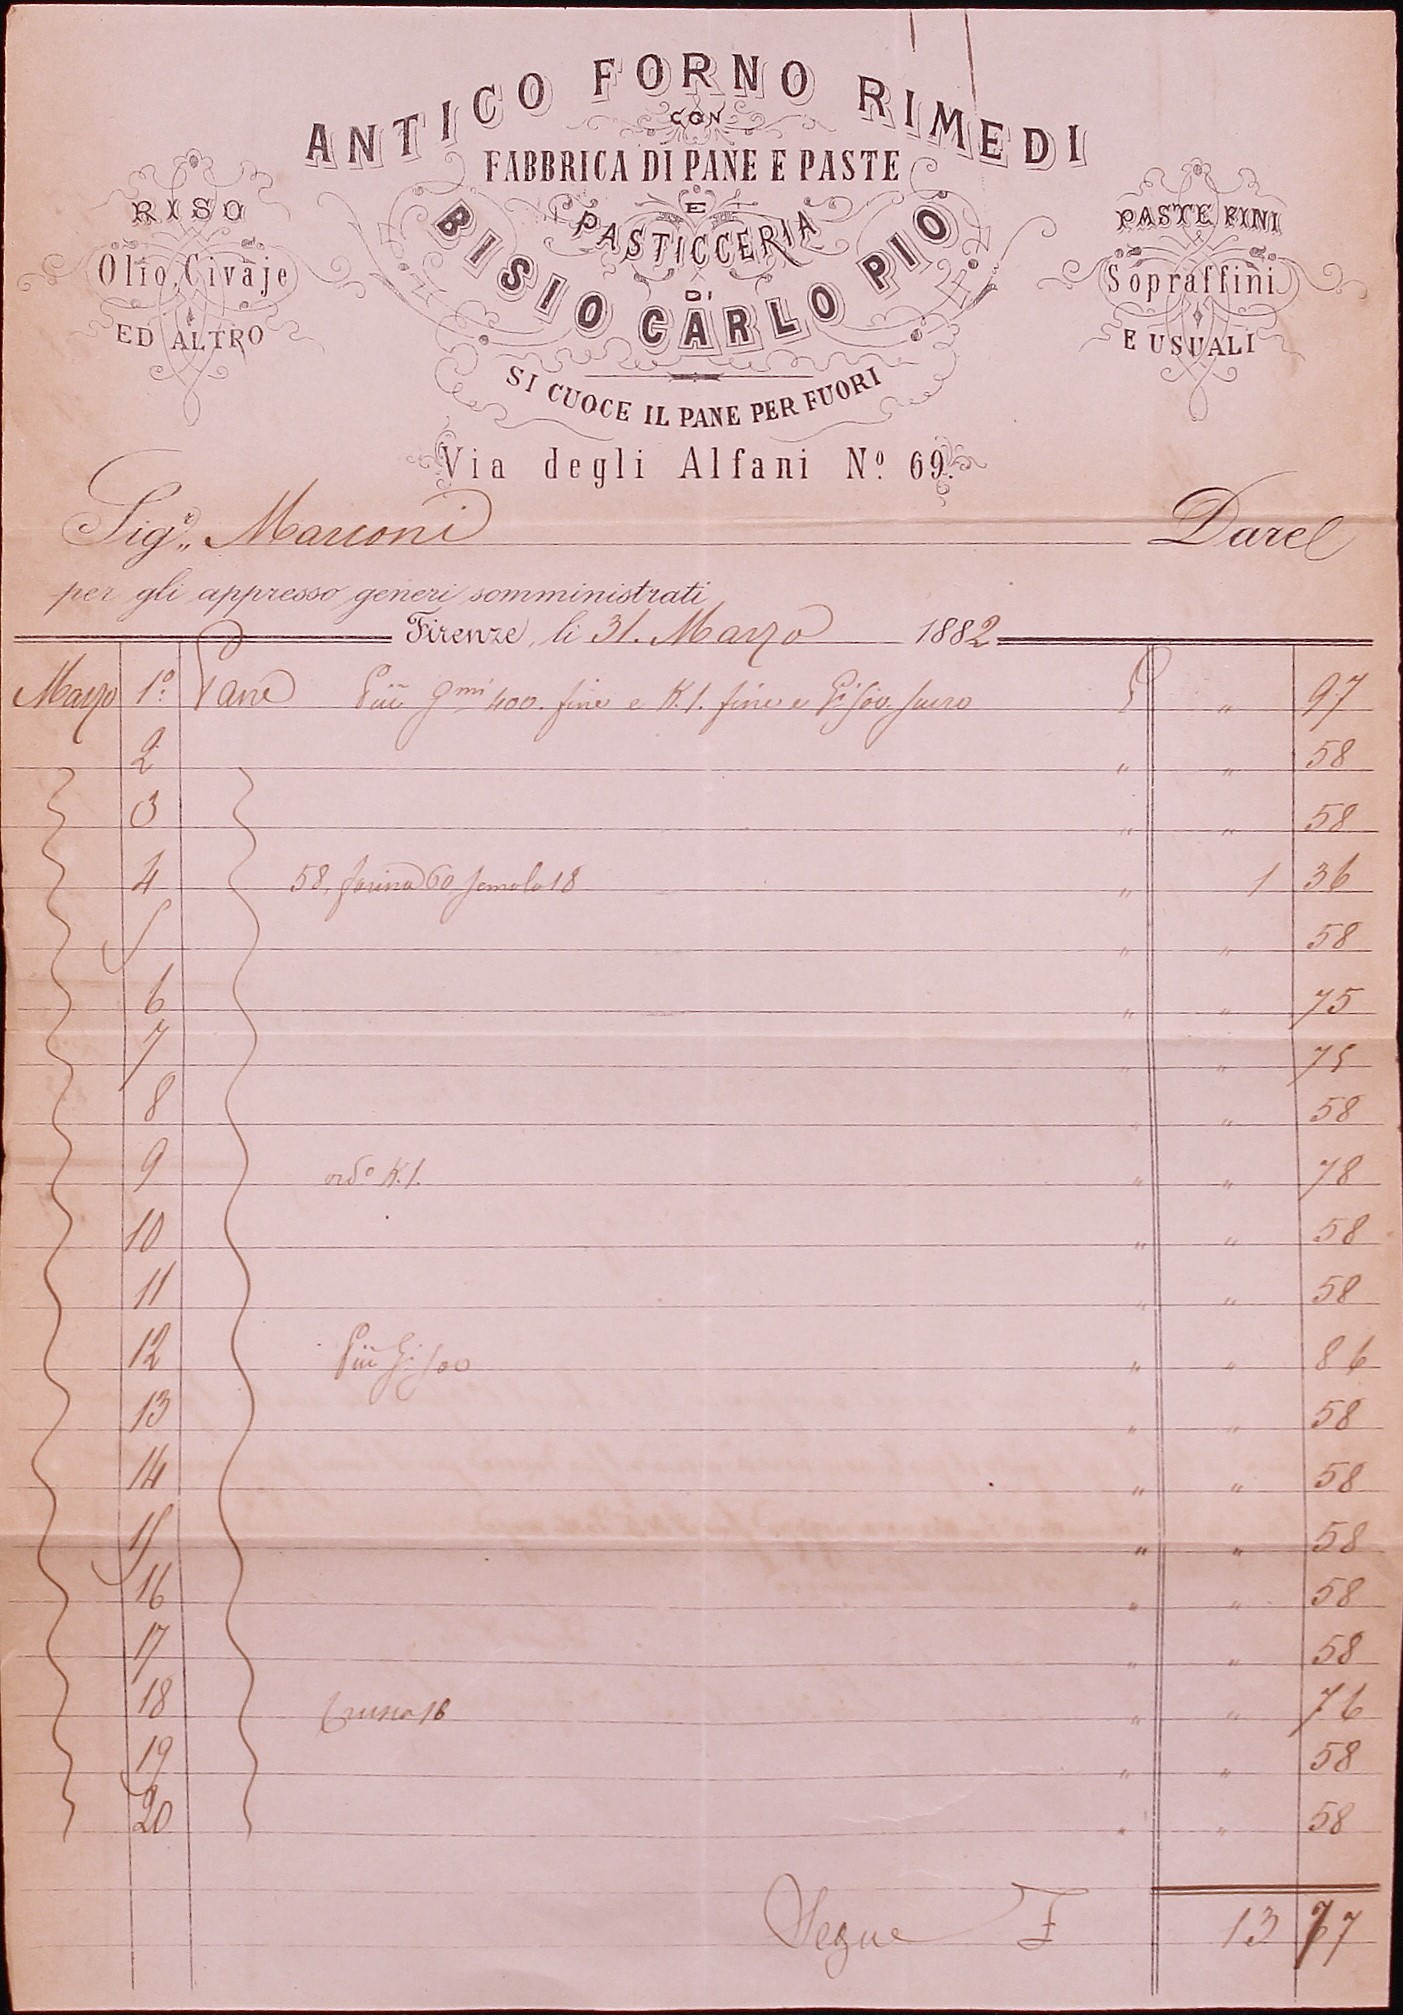 ANTICO FORNO RIMEDI
CON
FABBRICA DI PANE E PASTE
E
PASTICCERIA
DI
BISIO CARLO PIO
SI CUOCE IL PANE PER FUORI
Via degli Alfani Nº. 69.
RISO
Olio, Civaje
ED ALTRO
PASTE FINI
Sopraffini
E USUALI
Sigr. Marconi Dare
per gli appresso generi somministrati
Firenze, li 31. Marzo 1882
Marzo 1º. Pane Più gmi 400. fine e K. 1. fine e " 97
2 " " 58
3 " " 58
4 58, farina 60 semola 18 " 1 36
5 " " 58
6 " " 75
7 " " 75
8 " " 58
9 K. 1. " " 78
10 " " 58
11 " " 58
12 Più " " 86
13 " " 58
14 " " 58
15 " " 58
16 " " 58
17 " " 58
18 Crusca 18 " " 76
19 " " 58
20 " " 58
Segue £ 13 77